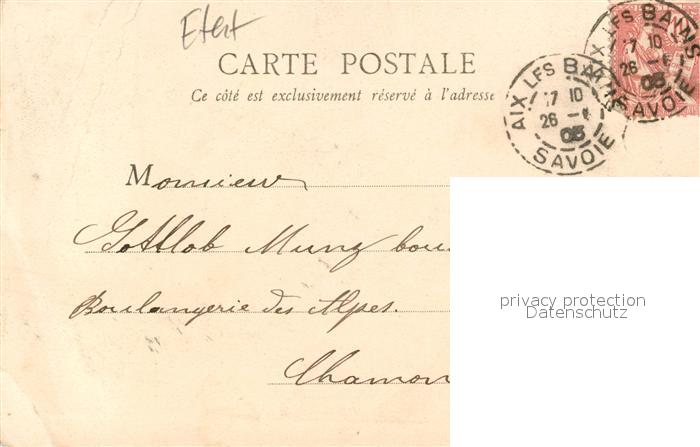 Etert
CARTE POSTALE
Ce côté est exclusivement réservé à l'adresse
AIX LES BAINS
17 10
26
05
SAVOIE
AIX LES BAINS
17 10
26
05
SAVOIE
Monsieur
Gottlob Munz bou
Boulangerie des Alpes.
Chamon
privacy protection
Datenschutz